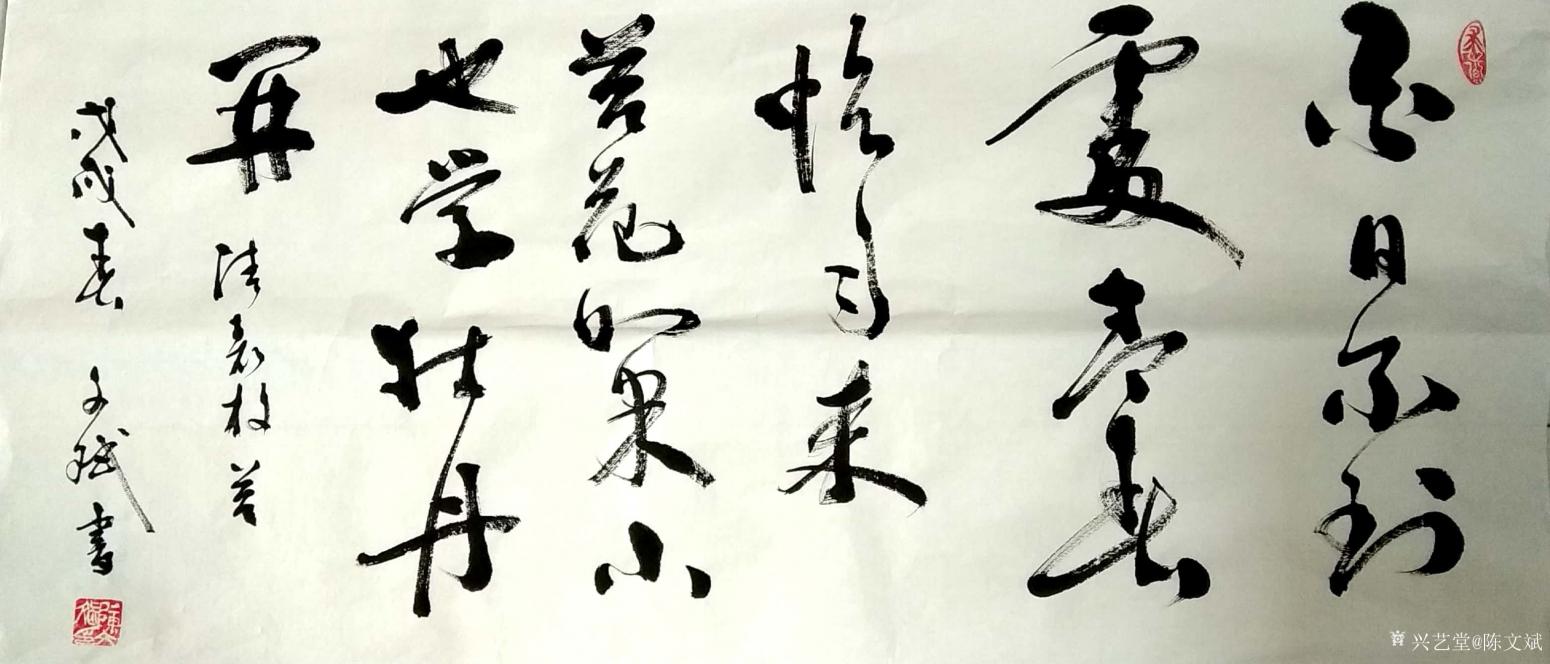 白日不到
處青春
恰自来
苔花如米小
也学牡丹
開 清袁枚苔
戊戌春 文斌書
兴艺堂@陈文斌